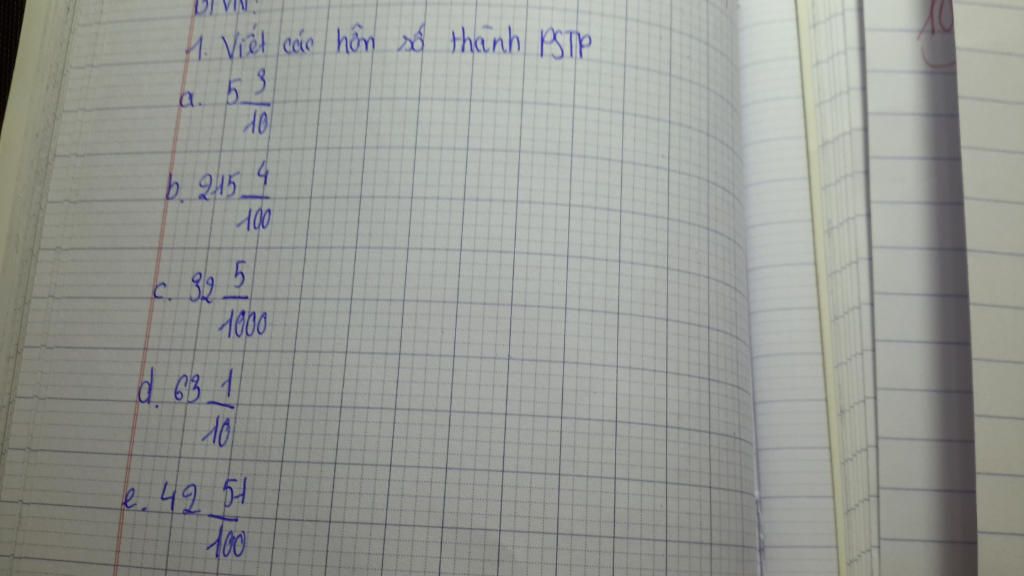 BTVN:
1. Viết các hỗn số thành PSTP
a. 5 3/10
b. 215 4/100
c. 32 5/1000
d. 63 1/10
e. 42 51/100
10